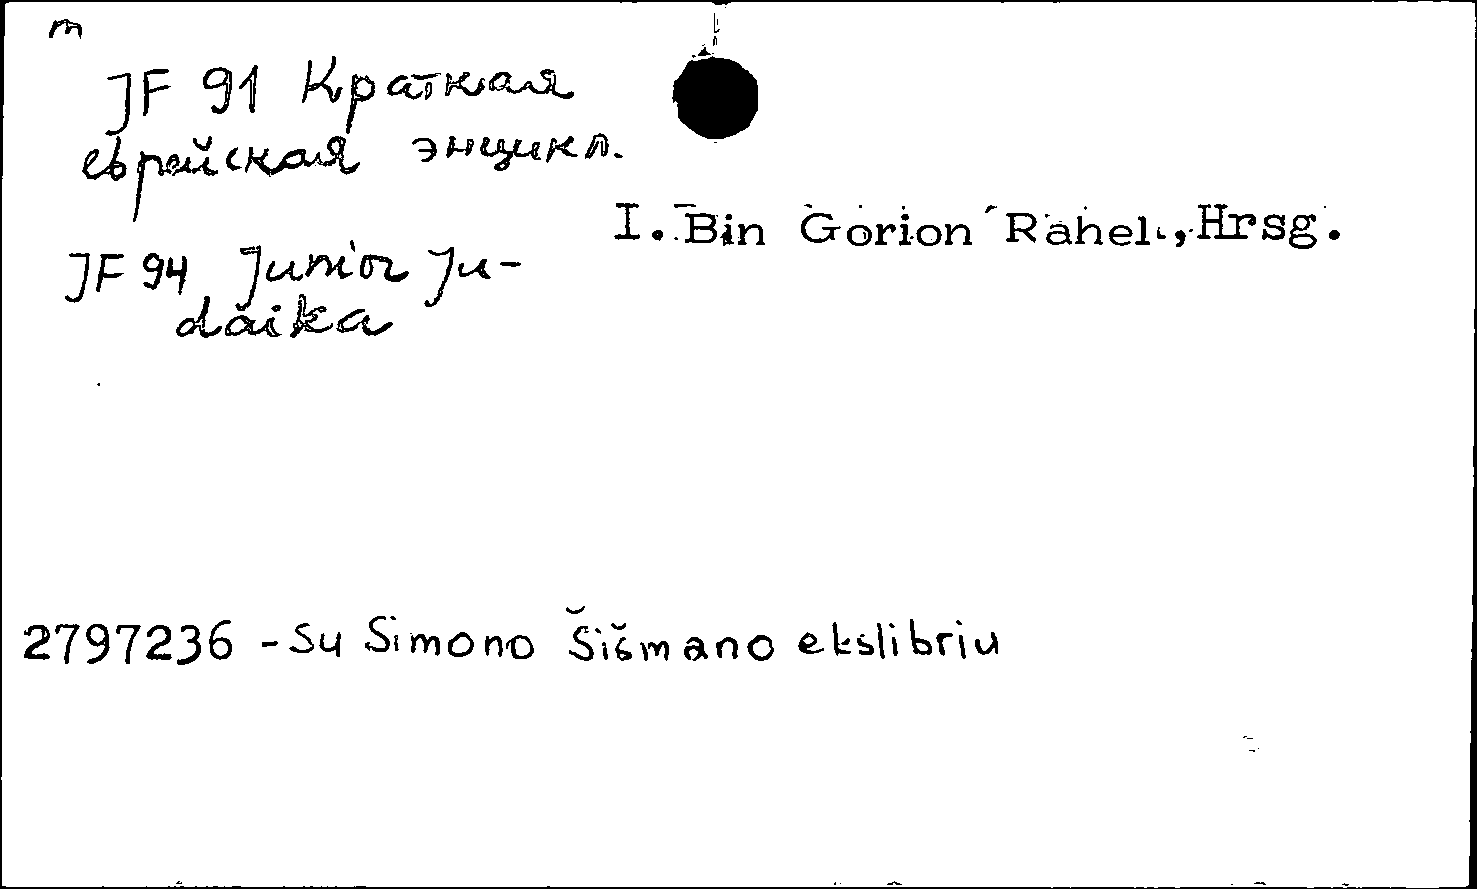 m
JF 91 Краткая
еврейская энцикл.
I. Bin Gorion Rahel, Hrsg.
JF 94 Junior Ju-
daika
2797236 - Su Simono Šišmano ekslibriu